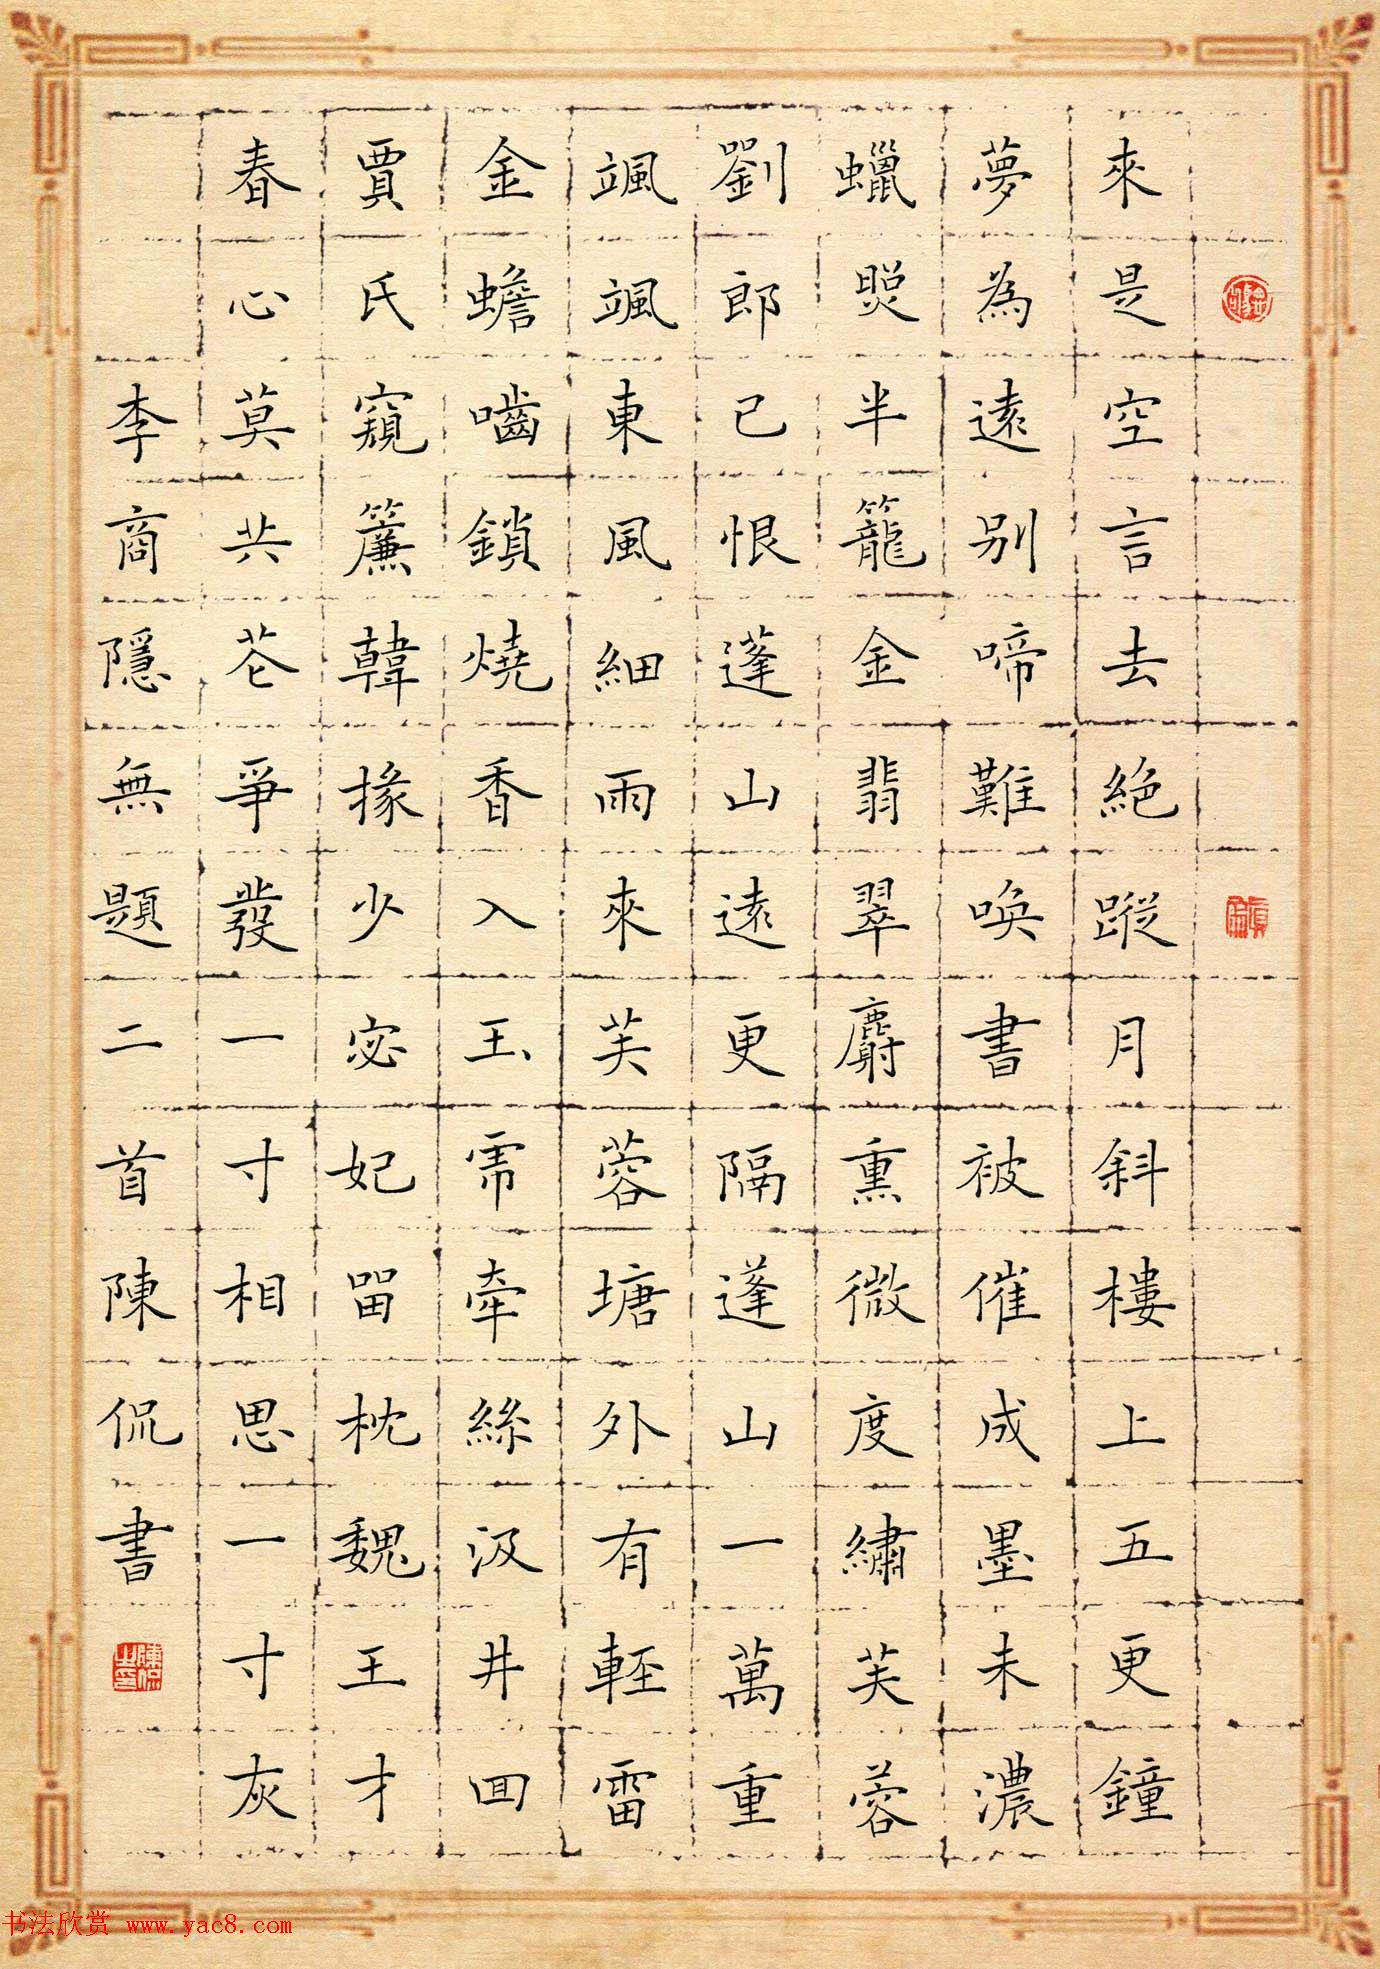 來是空言去絕蹤月斜樓上五更鐘
夢為遠別啼難喚書被催成墨未濃
蠟照半籠金翡翠麝熏微度繡芙蓉
劉郎已恨蓬山遠更隔蓬山一萬重
颯颯東風細雨來芙蓉塘外有輕雷
金蟾嚙鎖燒香入玉虎牽絲汲井回
賈氏窺簾韓掾少宓妃留枕魏王才
春心莫共花爭發一寸相思一寸灰
李商隱無題二首陳侃書
陳侃之印
书法欣赏 www.yac8.com